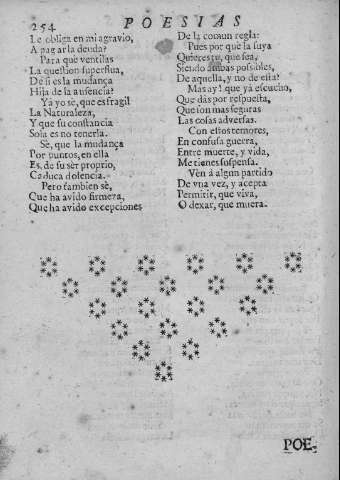 254 POESIAS
Le obliga en mi agravio,
A pagar la deuda?
Para què ventilas
La question superflua,
De si es la mudança
Hija de la ausencia?
Yà yo sè, que es fragil
La Naturaleza,
Y que su constancia
Sola es no tenerla.
Sè, que la mudança
Por puntos, en ella
Es, de su sèr proprio,
Caduca dolencia.
Pero tambien sè,
Que ha avido firmeza,
Que ha avido excepciones
De la comun regla:
Pues por què la suya
Quieres tu, que sea,
Siendo ambas possibles,
De aquella, y no de esta?
Mas ay! que yà escucho,
Que dàs por respuesta,
Que son mas seguras
Las cosas adversas.
Con estos temores,
En confusa guerra,
Entre muerte, y vida,
Me tienes suspensa.
Vèn à algun partido
De vna vez, y acepta
Permitir, que viva,
O dexar, que muera.
POE-